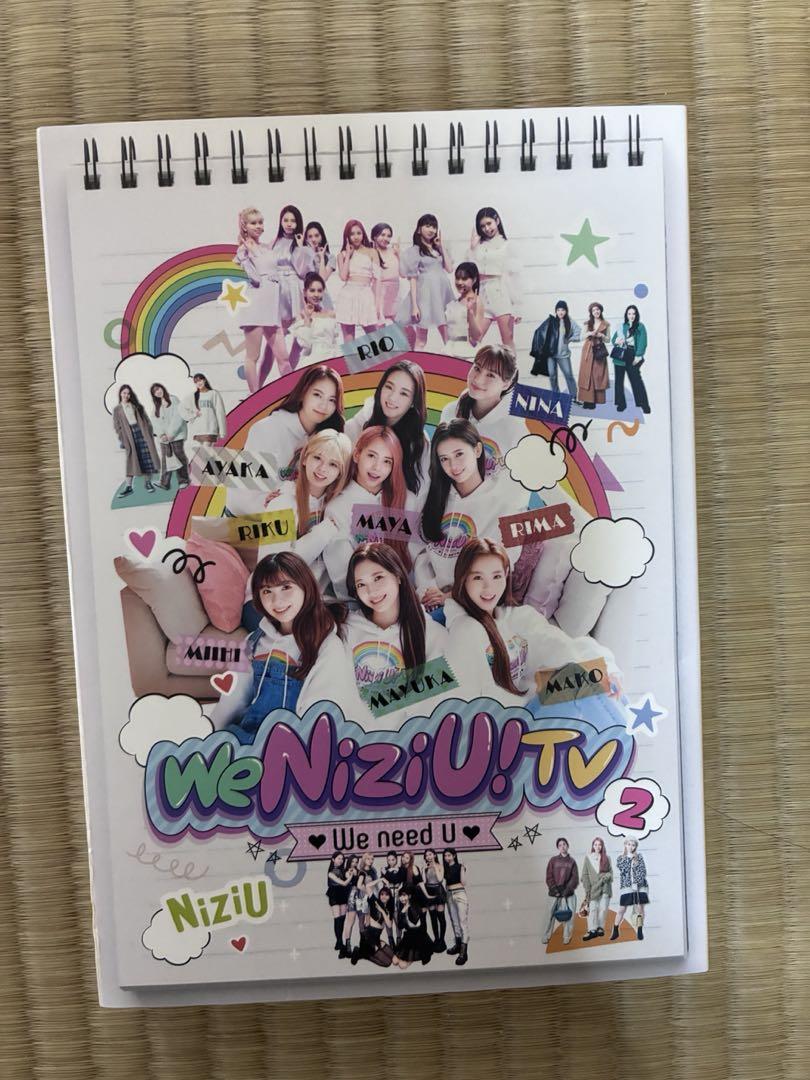 RIO
NINA
AYAKA
RIKU
MAYA
RIMA
MIIHI
MAYUKA
MAKO
We NiziU! TV
2
We need U
NiziU